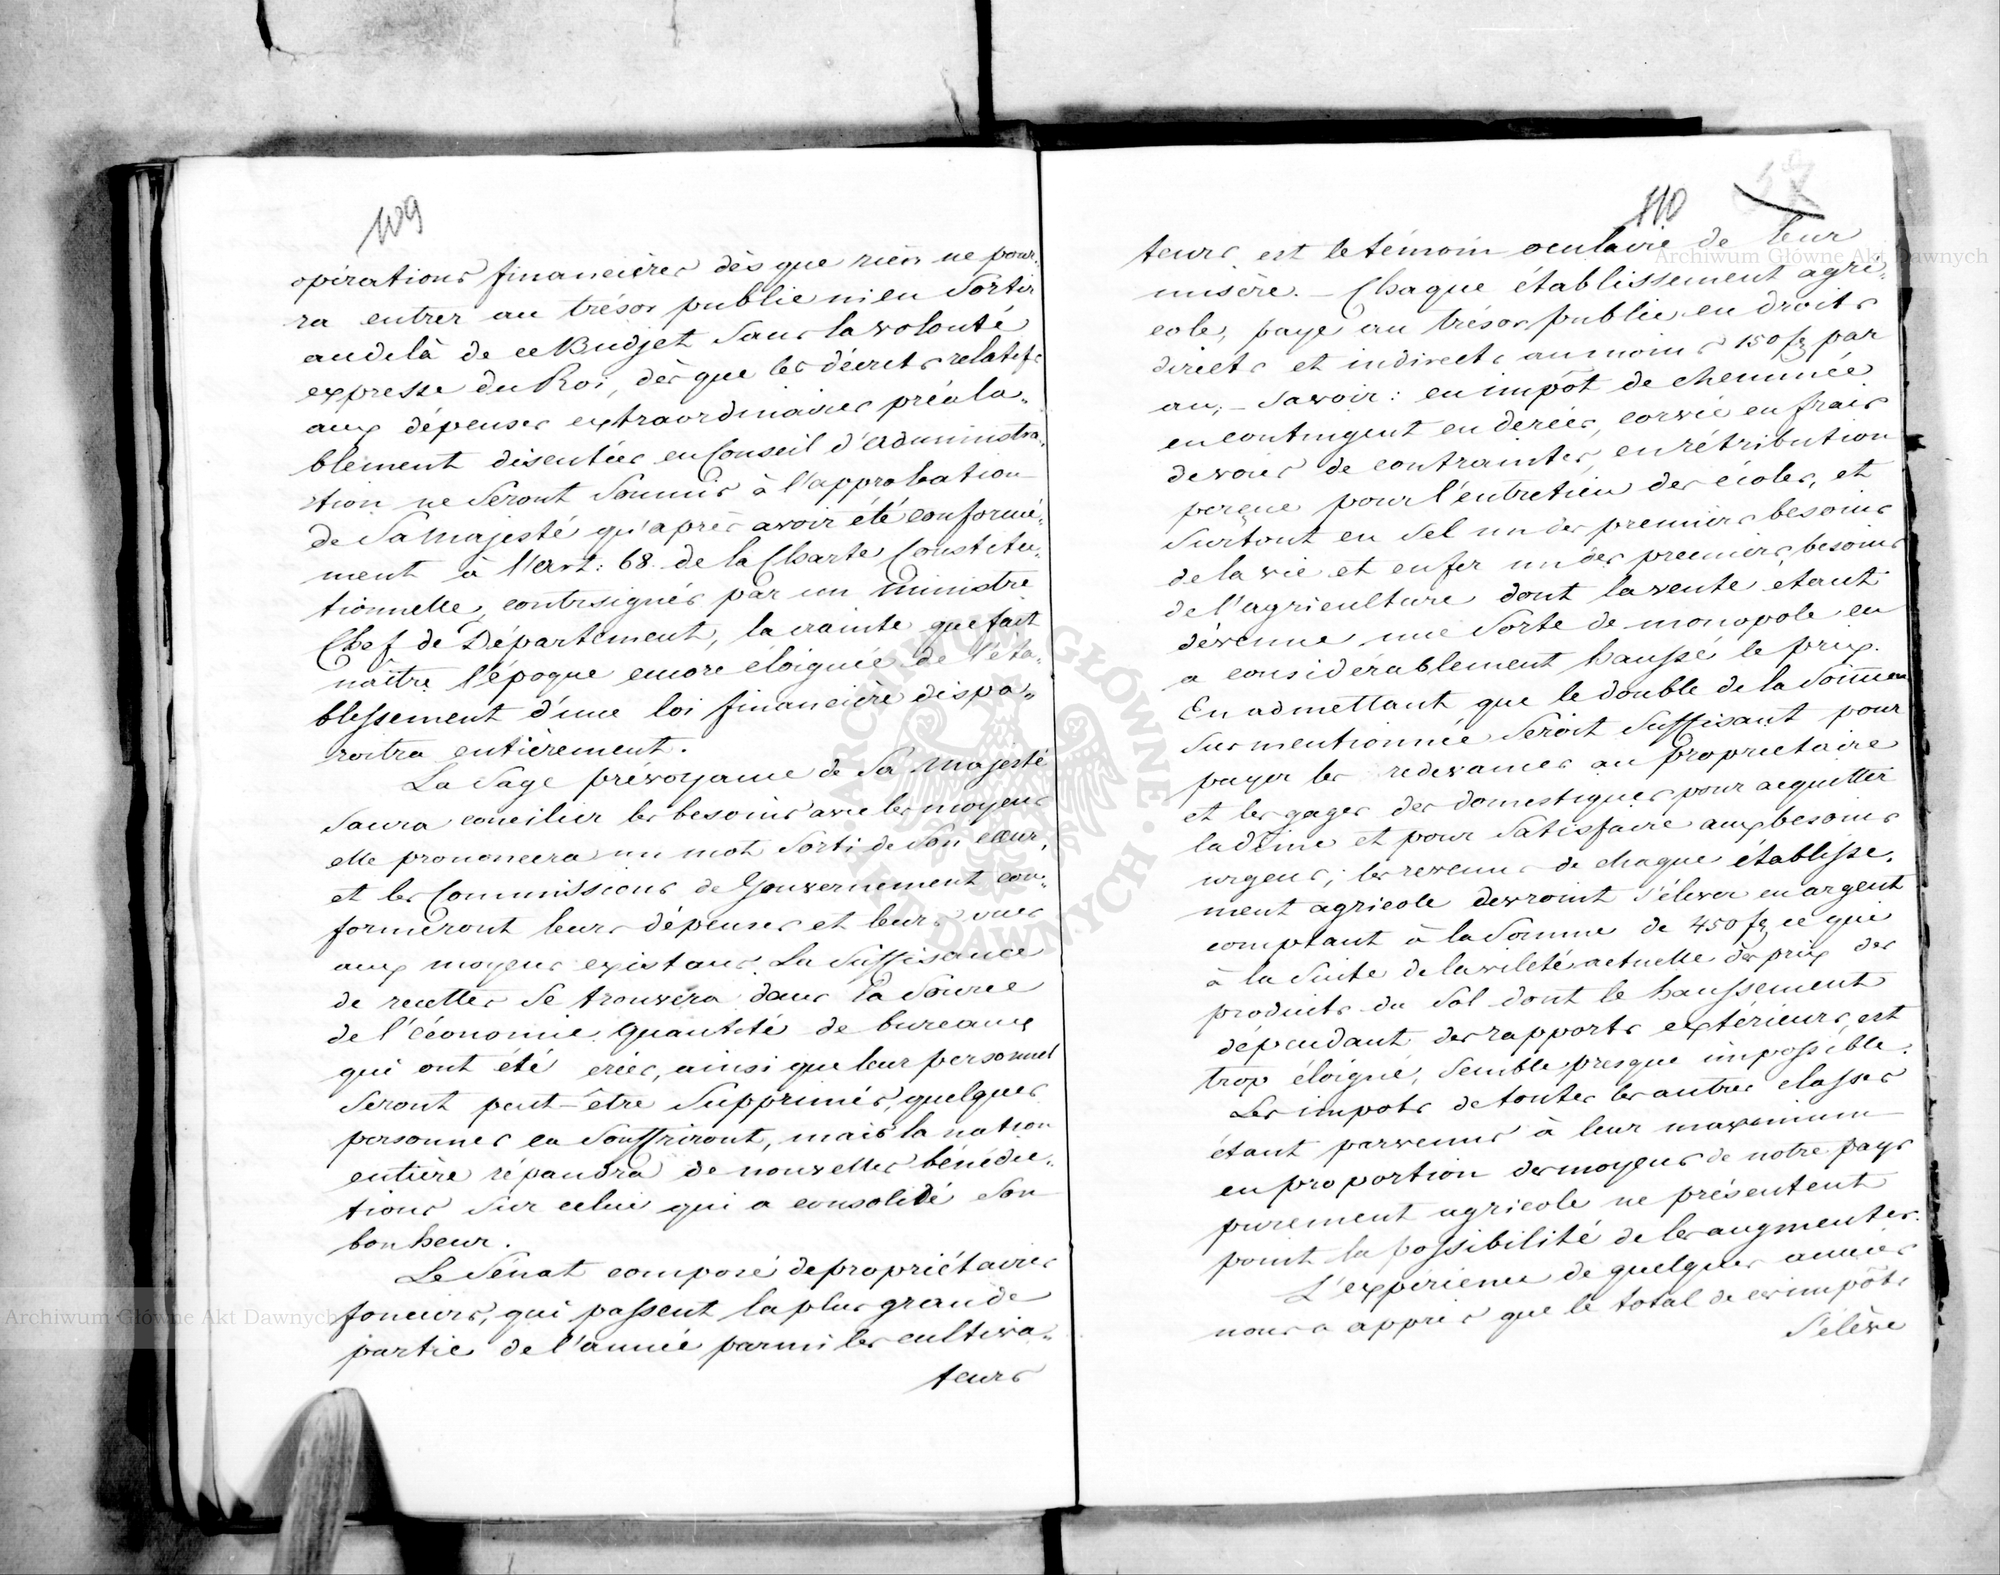 109
opérations financières dès que rien ne pour-
ra entrer au trésor public ni en sortir
audelà de ce Budjet sans la volonté
expresse du Roi, dès que les décrets relatifs
aux dépenses extraordinaires préala-
blement discutées en Conseil d'administra-
tion ne seront soumis à l'approbation
de Sa Majesté qu'après avoir été conformé-
ment à l'art: 68. de la Charte Constitu-
tionnelle, contrsignés par un ministre
Chef de Département, la crainte que fait
naître l'époque encore éloignée de l'éta-
blessement d'une loi financière dispa-
roitra entièrement.
La sage prévoyance de Sa Majesté
saura concilier les besoins avec les moyens
elle prononcera un mot sorti de son cœur,
et les Commissions de Gouvernement con-
formeront leurs dépenses et leurs vues
aux moyens existans. La suffisance
de recettes se trouvera dans la source
de l'économie. Quantité de bureaux
qui ont été créés, ainsi que leur personnel
seront peut-être supprimés, quelques
personnes en souffriront, mais la nation
entière répandra de nouvelles bénédic-
tions sur celui qui a consolidé son
bonheur.
Le Sénat composé de propriétaires
fonciers, qui passent la plus grande
partie de l'année parmi les cultiva-
teurs
110
teurs est le témoin oculaire de leur
misère. – Chaque établissement agri-
cole, paye au trésor public en droits
directs et indirects au moins 150 fl par
an, – savoir: en impôt de cheminée
en contingent en derées, corvée en frais
devoies de contraintes, en rétribution
perçue pour l'entretien des écoles, et
surtout en sel un des premiers besoins
de la vie et en fer un des premiers besoins
de l'agriculture dont la vente étant
dévenue une sorte de monopole en
a considérablement haussé le prix.
En admettant que le double de la somme
sus mentionnée seroit suffisant pour
payer les redevances au propriétaire
et les gages des domestiques pour acquitter
la dîme et pour satisfaire aux besoins
urgens; les revenus de chaque établisse-
ment agricole devroint s'élever en argent
comptant à la somme de 450 fl, ce qui
à la suite de la vileté actuelle des prix des
produits du sol dont le haussement
dépendant des rapports extérieurs, est
trop éloigné, semble presque impossible.
Les impots de toutes les autres classes
étant parvenus à leur maximum
en proportion des moyens de notre pays
purement agricole ne présentent
point la possibilité de les augmenter.
L'expérience de quelques années
nous a appris que le total de ces impôts
s'élève
Archiwum Główne Akt Dawnych
Archiwum Główne Akt Dawnych
ARCHIWUM GŁÓWNE AKT DAWNYCH